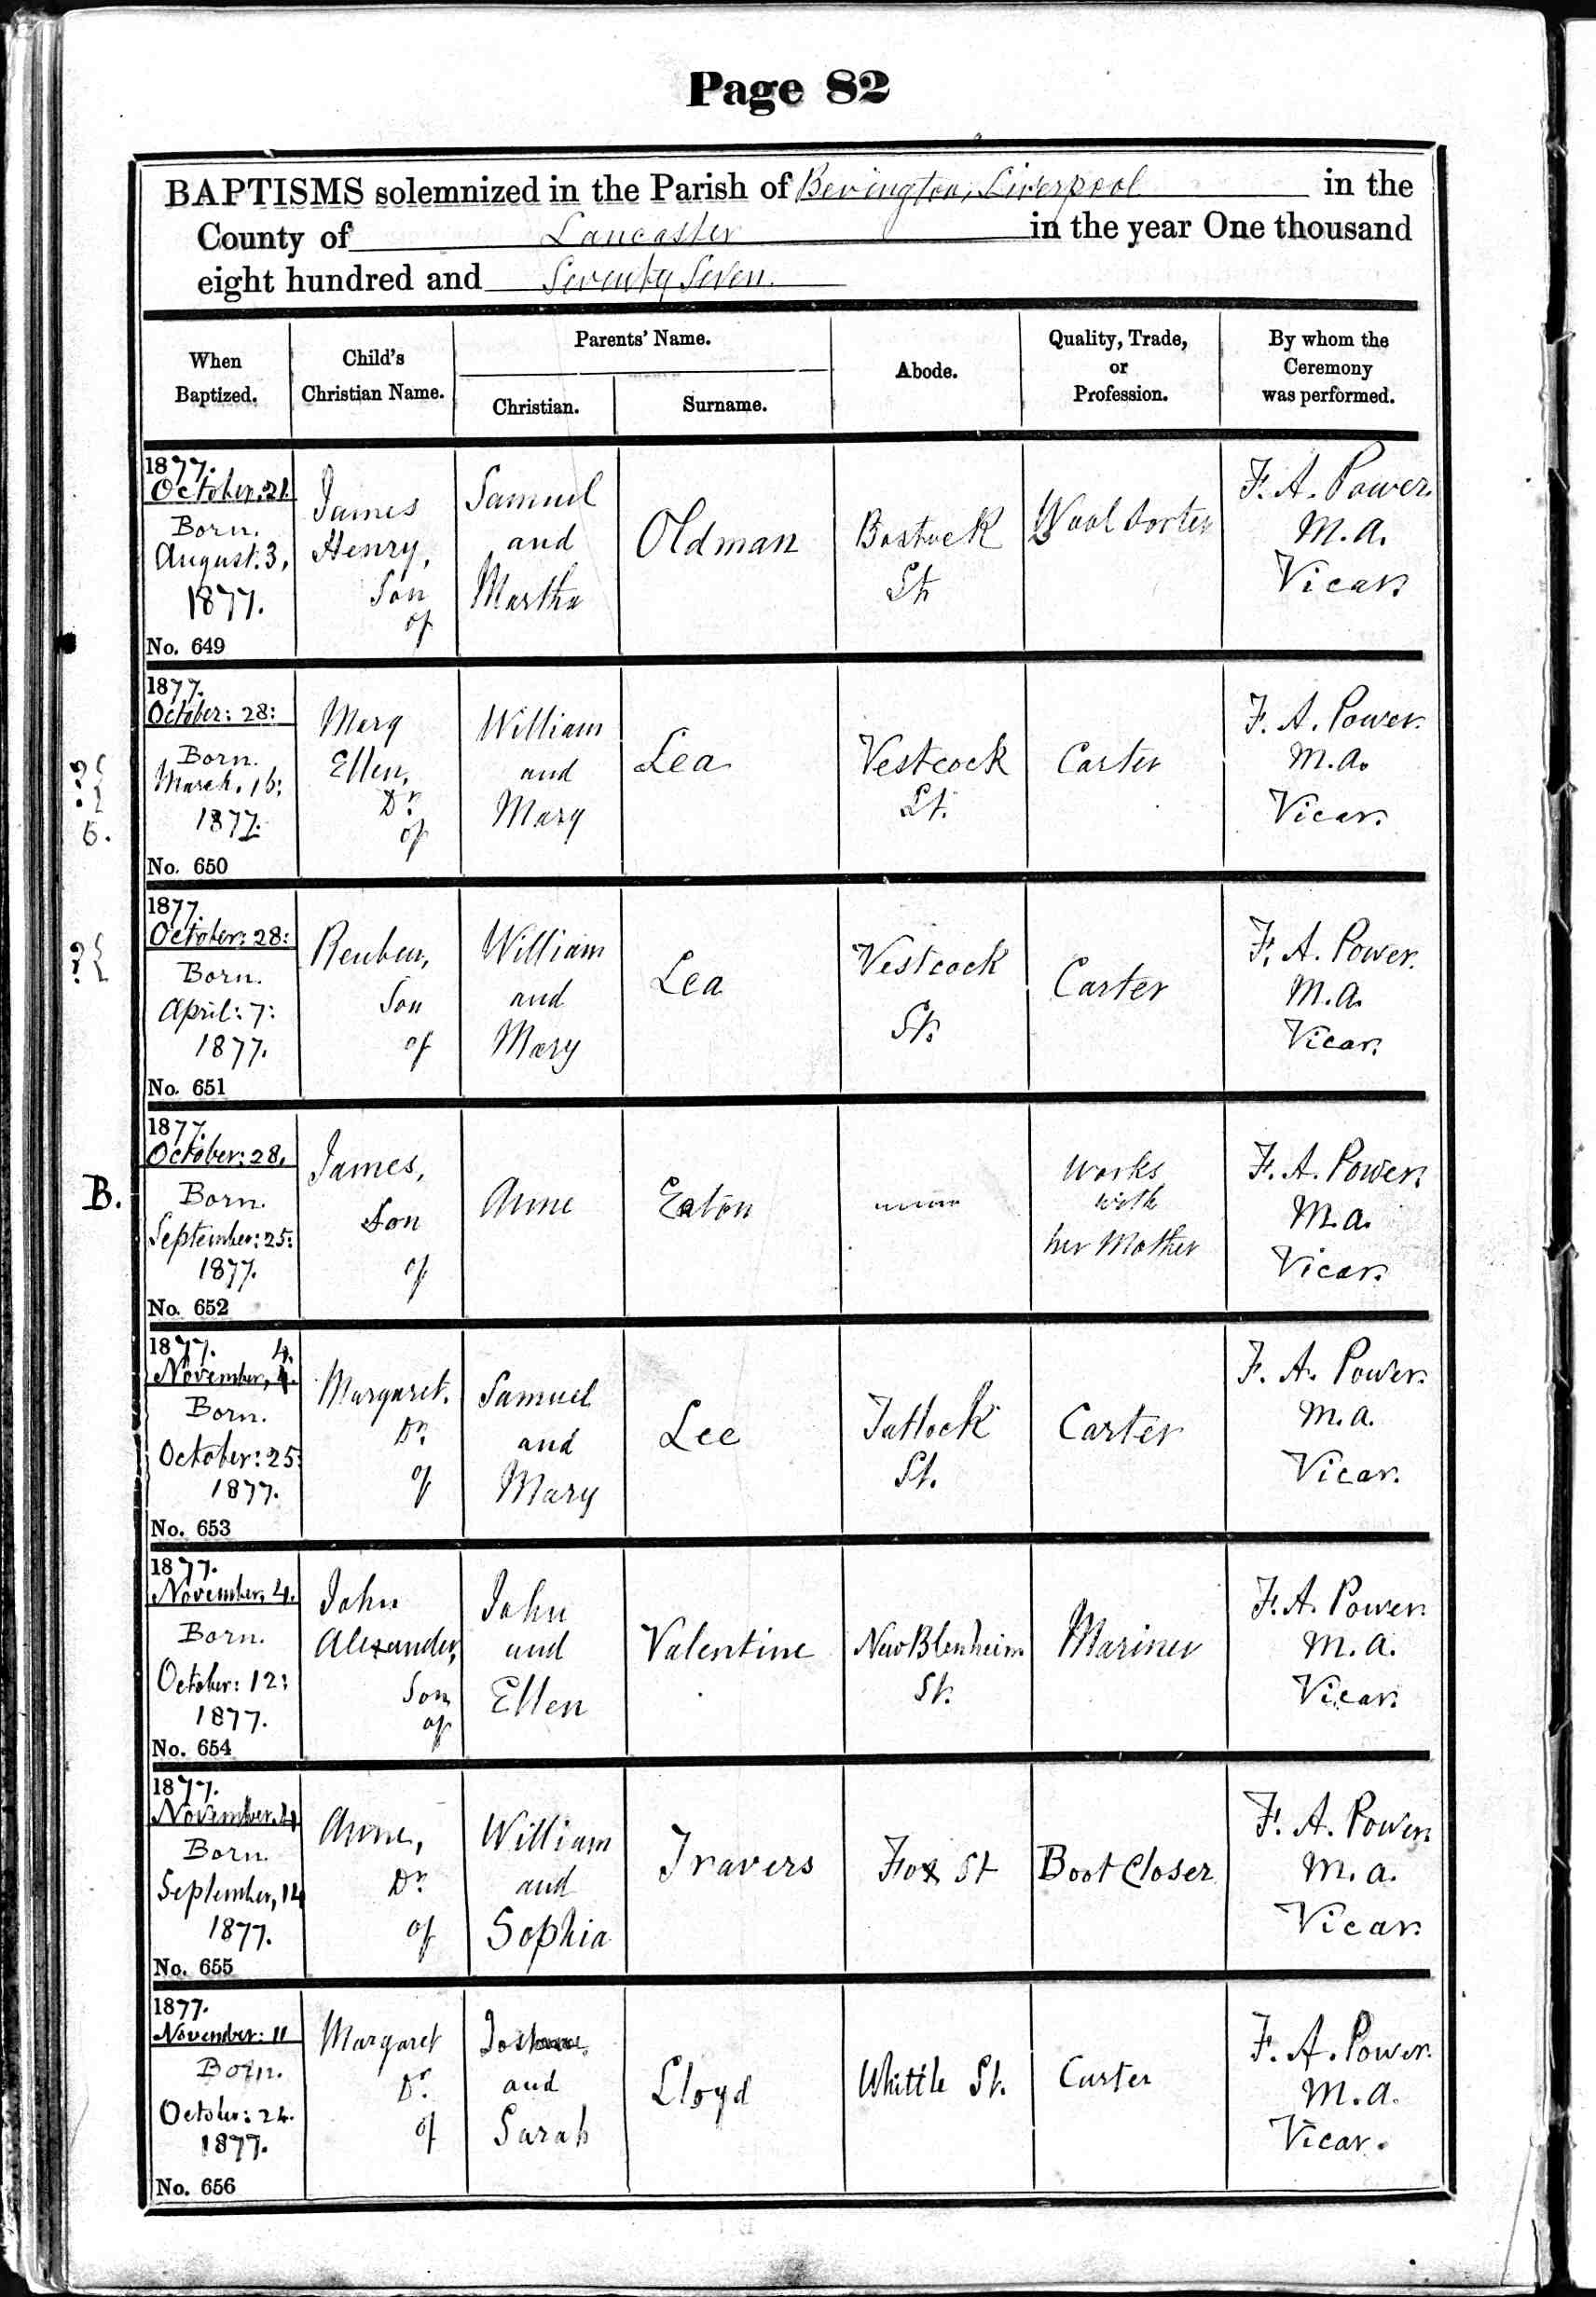 Page 82
BAPTISMS solemnized in the Parish of Bevington, Liverpool in the
County of Lancaster in the year One thousand
eight hundred and Seventy Seven.
When Baptized. Child's Christian Name. Parents' Name. Christian. Surname. Abode. Quality, Trade, or Profession. By whom the Ceremony was performed.
1877.
October: 21.
Born.
August: 3,
1877.
No. 649
James
Henry,
Son
of
Samuel
and
Martha
Oldman
Bostock
St.
Wool Sorter
F. A. Power.
M.A.
Vicar.
1877.
October: 28:
Born.
March. 16:
1877.
No. 650
Mary
Ellen,
Dr.
of
William
and
Mary
Lea
Vestcock
St.
Carter
F. A. Power.
M.A.
Vicar.
6.
1877.
October: 28:
Born.
April: 7:
1877.
No. 651
Reuben,
Son
of
William
and
Mary
Lea
Vestcock
St.
Carter
F. A. Power.
M.A.
Vicar.
?{
B.
1877.
October: 28.
Born.
September: 25:
1877.
No. 652
James,
Son
of
Anne
Eaton
Works
with
her Mother
F. A. Power.
M.A.
Vicar.
1877. 4.
November, 4.
Born.
October: 25:
1877.
No. 653
Margaret.
Dr.
of
Samuel
and
Mary
Lee
Tatlock
St.
Carter
F. A. Power.
M.A.
Vicar.
1877.
November, 4.
Born.
October: 12:
1877.
No. 654
John
Alexander,
Son
of
John
and
Ellen
Valentine
New Blenheim
St.
Mariner
F. A. Power.
M.A.
Vicar.
1877.
November, 4
Born.
September, 14
1877.
No. 655
Anne,
Dr.
of
William
and
Sophia
Travers
Fox St
Boot Closer
F. A. Power.
M.A.
Vicar.
1877.
November: 11
Born.
October: 24.
1877.
No. 656
Margaret
Dr.
of
and
Sarah
Lloyd
Whittle St.
Carter
F. A. Power.
M.A.
Vicar.